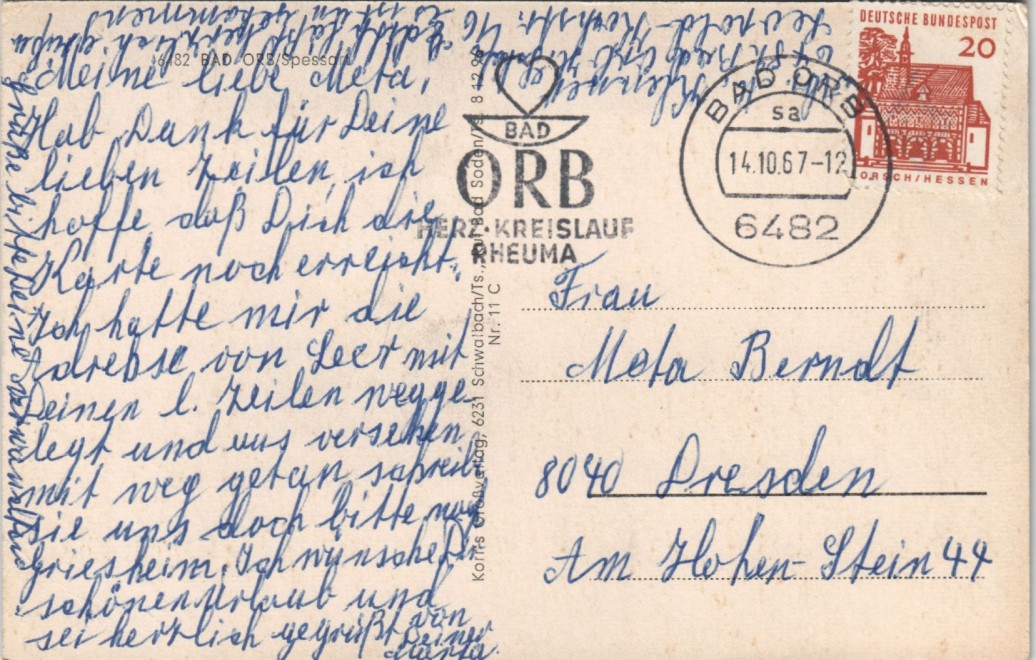 6482 BAD ORB/Spessart
Meine liebe Meta,
Hab Dank für Deine
lieben Zeilen, ich
hoffe daß Dich die
Karte noch erreicht.
Ich hatte mir die
Adreße von Leer mit
Deinen l. Zeilen wegge-
legt und aus versehen
mit weg getan schreib
sie uns doch bitte nach
Griesheim. Ich wünsche Dir
schönen Urlaub und
sei herzlich gegrüßt von
Deiner
Marta.
Leopold-Kochstr. 46
Bad Orb
herzlich grüßen
Grüße bitte Deine Verwandten
Korr's Großverlag, 6231 Schwalbach/Ts., Bad Soden/Ts.
Nr. 11 C
BAD
ORB
HERZ·KREISLAUF
RHEUMA
BAD ORB
sa
14.10.67-12
6482
DEUTSCHE BUNDESPOST
20
LORSCH/HESSEN
Frau
Meta Berndt
8040 Dresden
Am Hohen-Stein 44